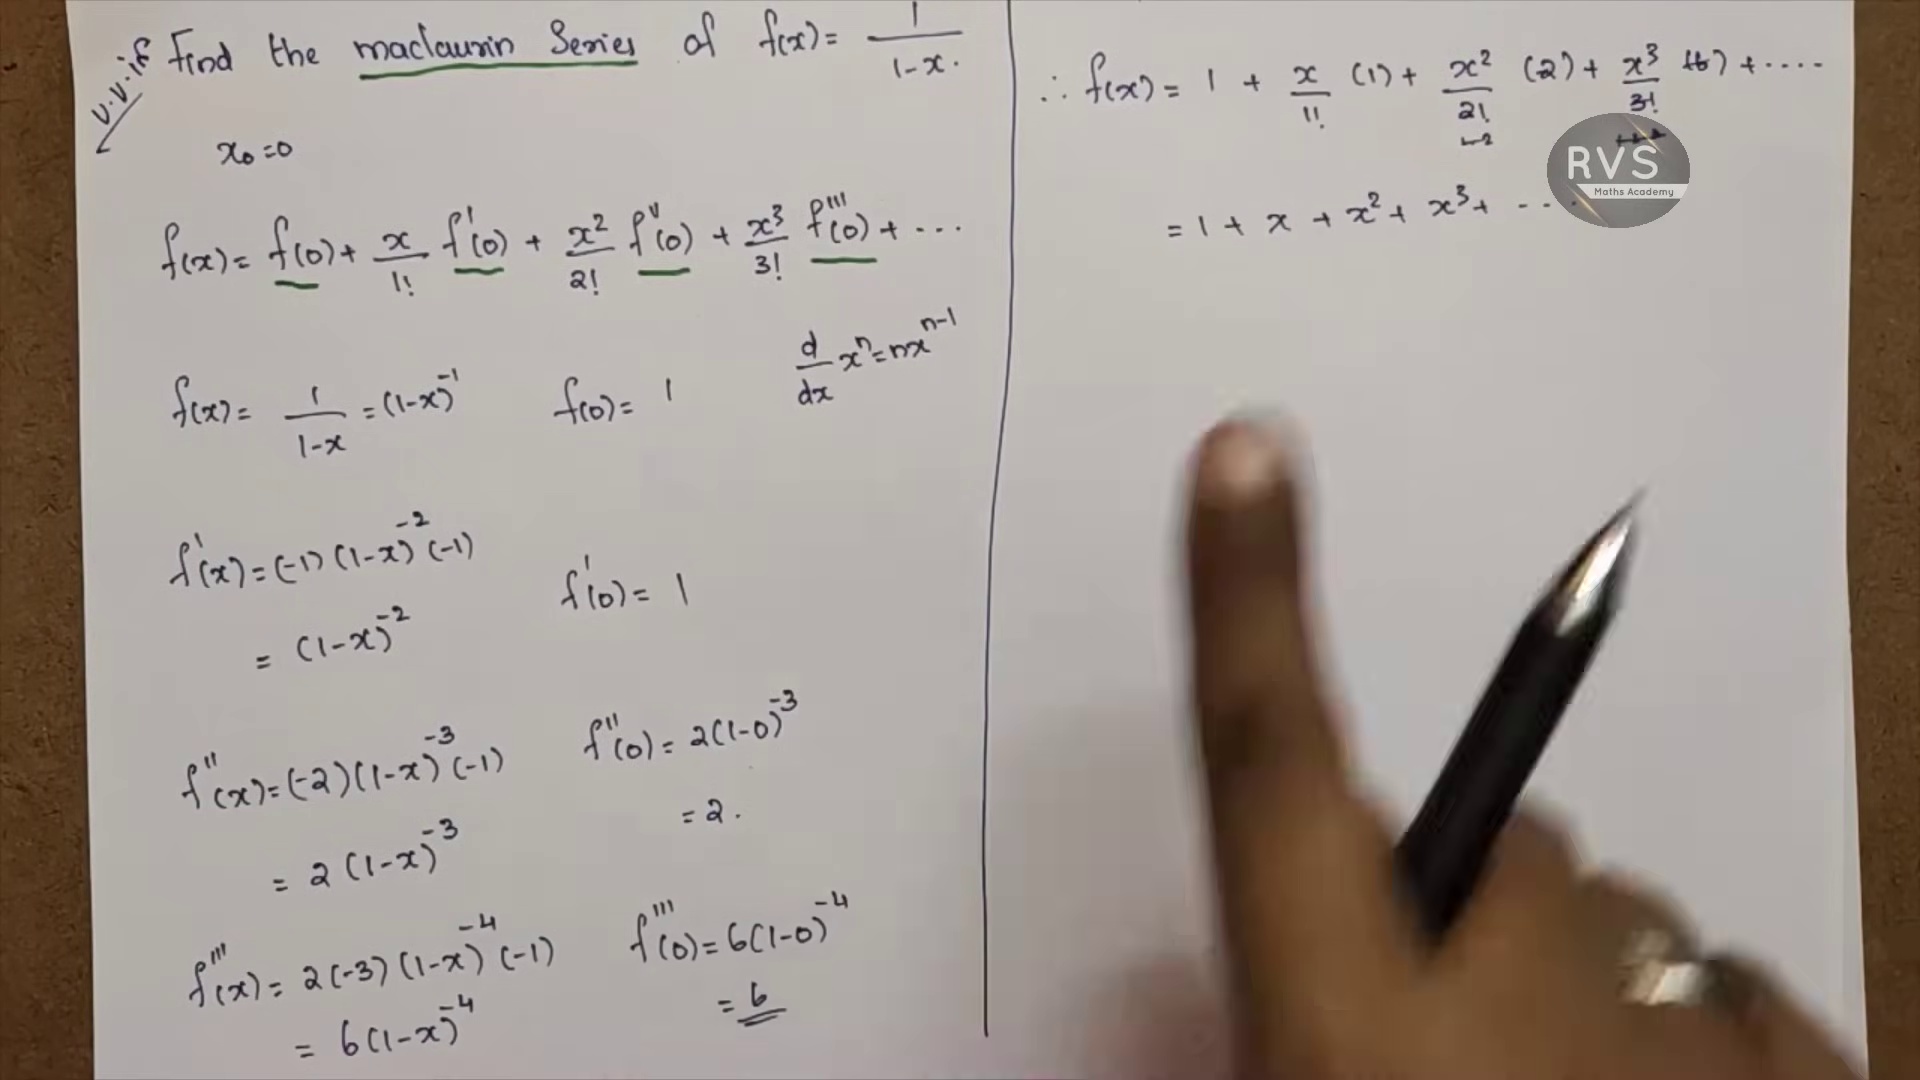 V.V.if Find the maclaurin Series of f(x) = 1/(1-x).
x₀=0
f(x) = f(0) + x/1! f'(0) + x²/2! f''(0) + x³/3! f'''(0) + ...
d/dx xⁿ = nxⁿ⁻¹
f(x) = 1/(1-x) = (1-x)⁻¹ f(0) = 1
f'(x) = (-1)(1-x)⁻²(-1)
= (1-x)⁻² f'(0) = 1
f''(x) = (-2)(1-x)⁻³(-1) f''(0) = 2(1-0)⁻³
= 2(1-x)⁻³ = 2.
f'''(x) = 2(-3)(1-x)⁻⁴(-1) f'''(0) = 6(1-0)⁻⁴
= 6(1-x)⁻⁴ = 6
∴ f(x) = 1 + x/1! (1) + x²/2! (2) + x³/3! (6) + ....
= 1 + x + x² + x³ + ....
RVS
Maths Academy